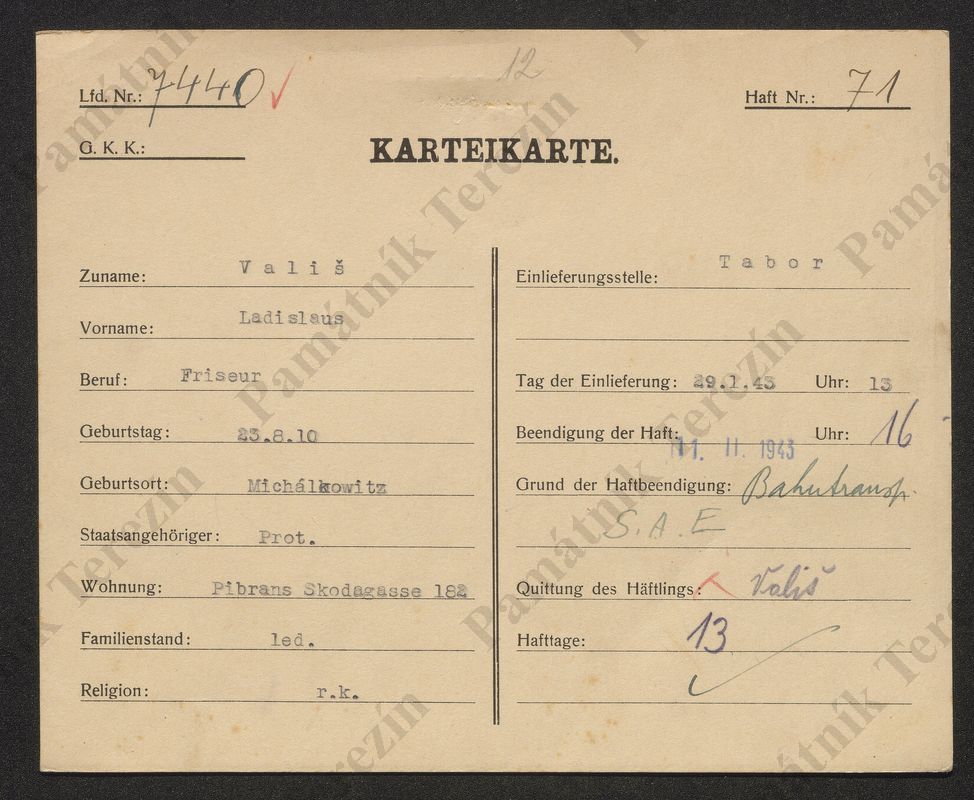 12
Lfd. Nr.: 7440
Haft Nr.: 71
G. K. K.:
KARTEIKARTE.
Zuname: Vališ
Vorname: Ladislaus
Beruf: Friseur
Geburtstag: 23.8.10
Geburtsort: Michálkowitz
Staatsangehöriger: Prot.
Wohnung: Pibrans Skodagasse 182
Familienstand: led.
Religion: r.k.
Einlieferungsstelle: Tabor
Tag der Einlieferung: 29.1.43 Uhr: 13
Beendigung der Haft: 11. II. 1943 Uhr: 16
Grund der Haftbeendigung: Bahntransp.
S.A.E
Quittung des Häftlings: Vališ
Hafttage: 13
Památník Terezín